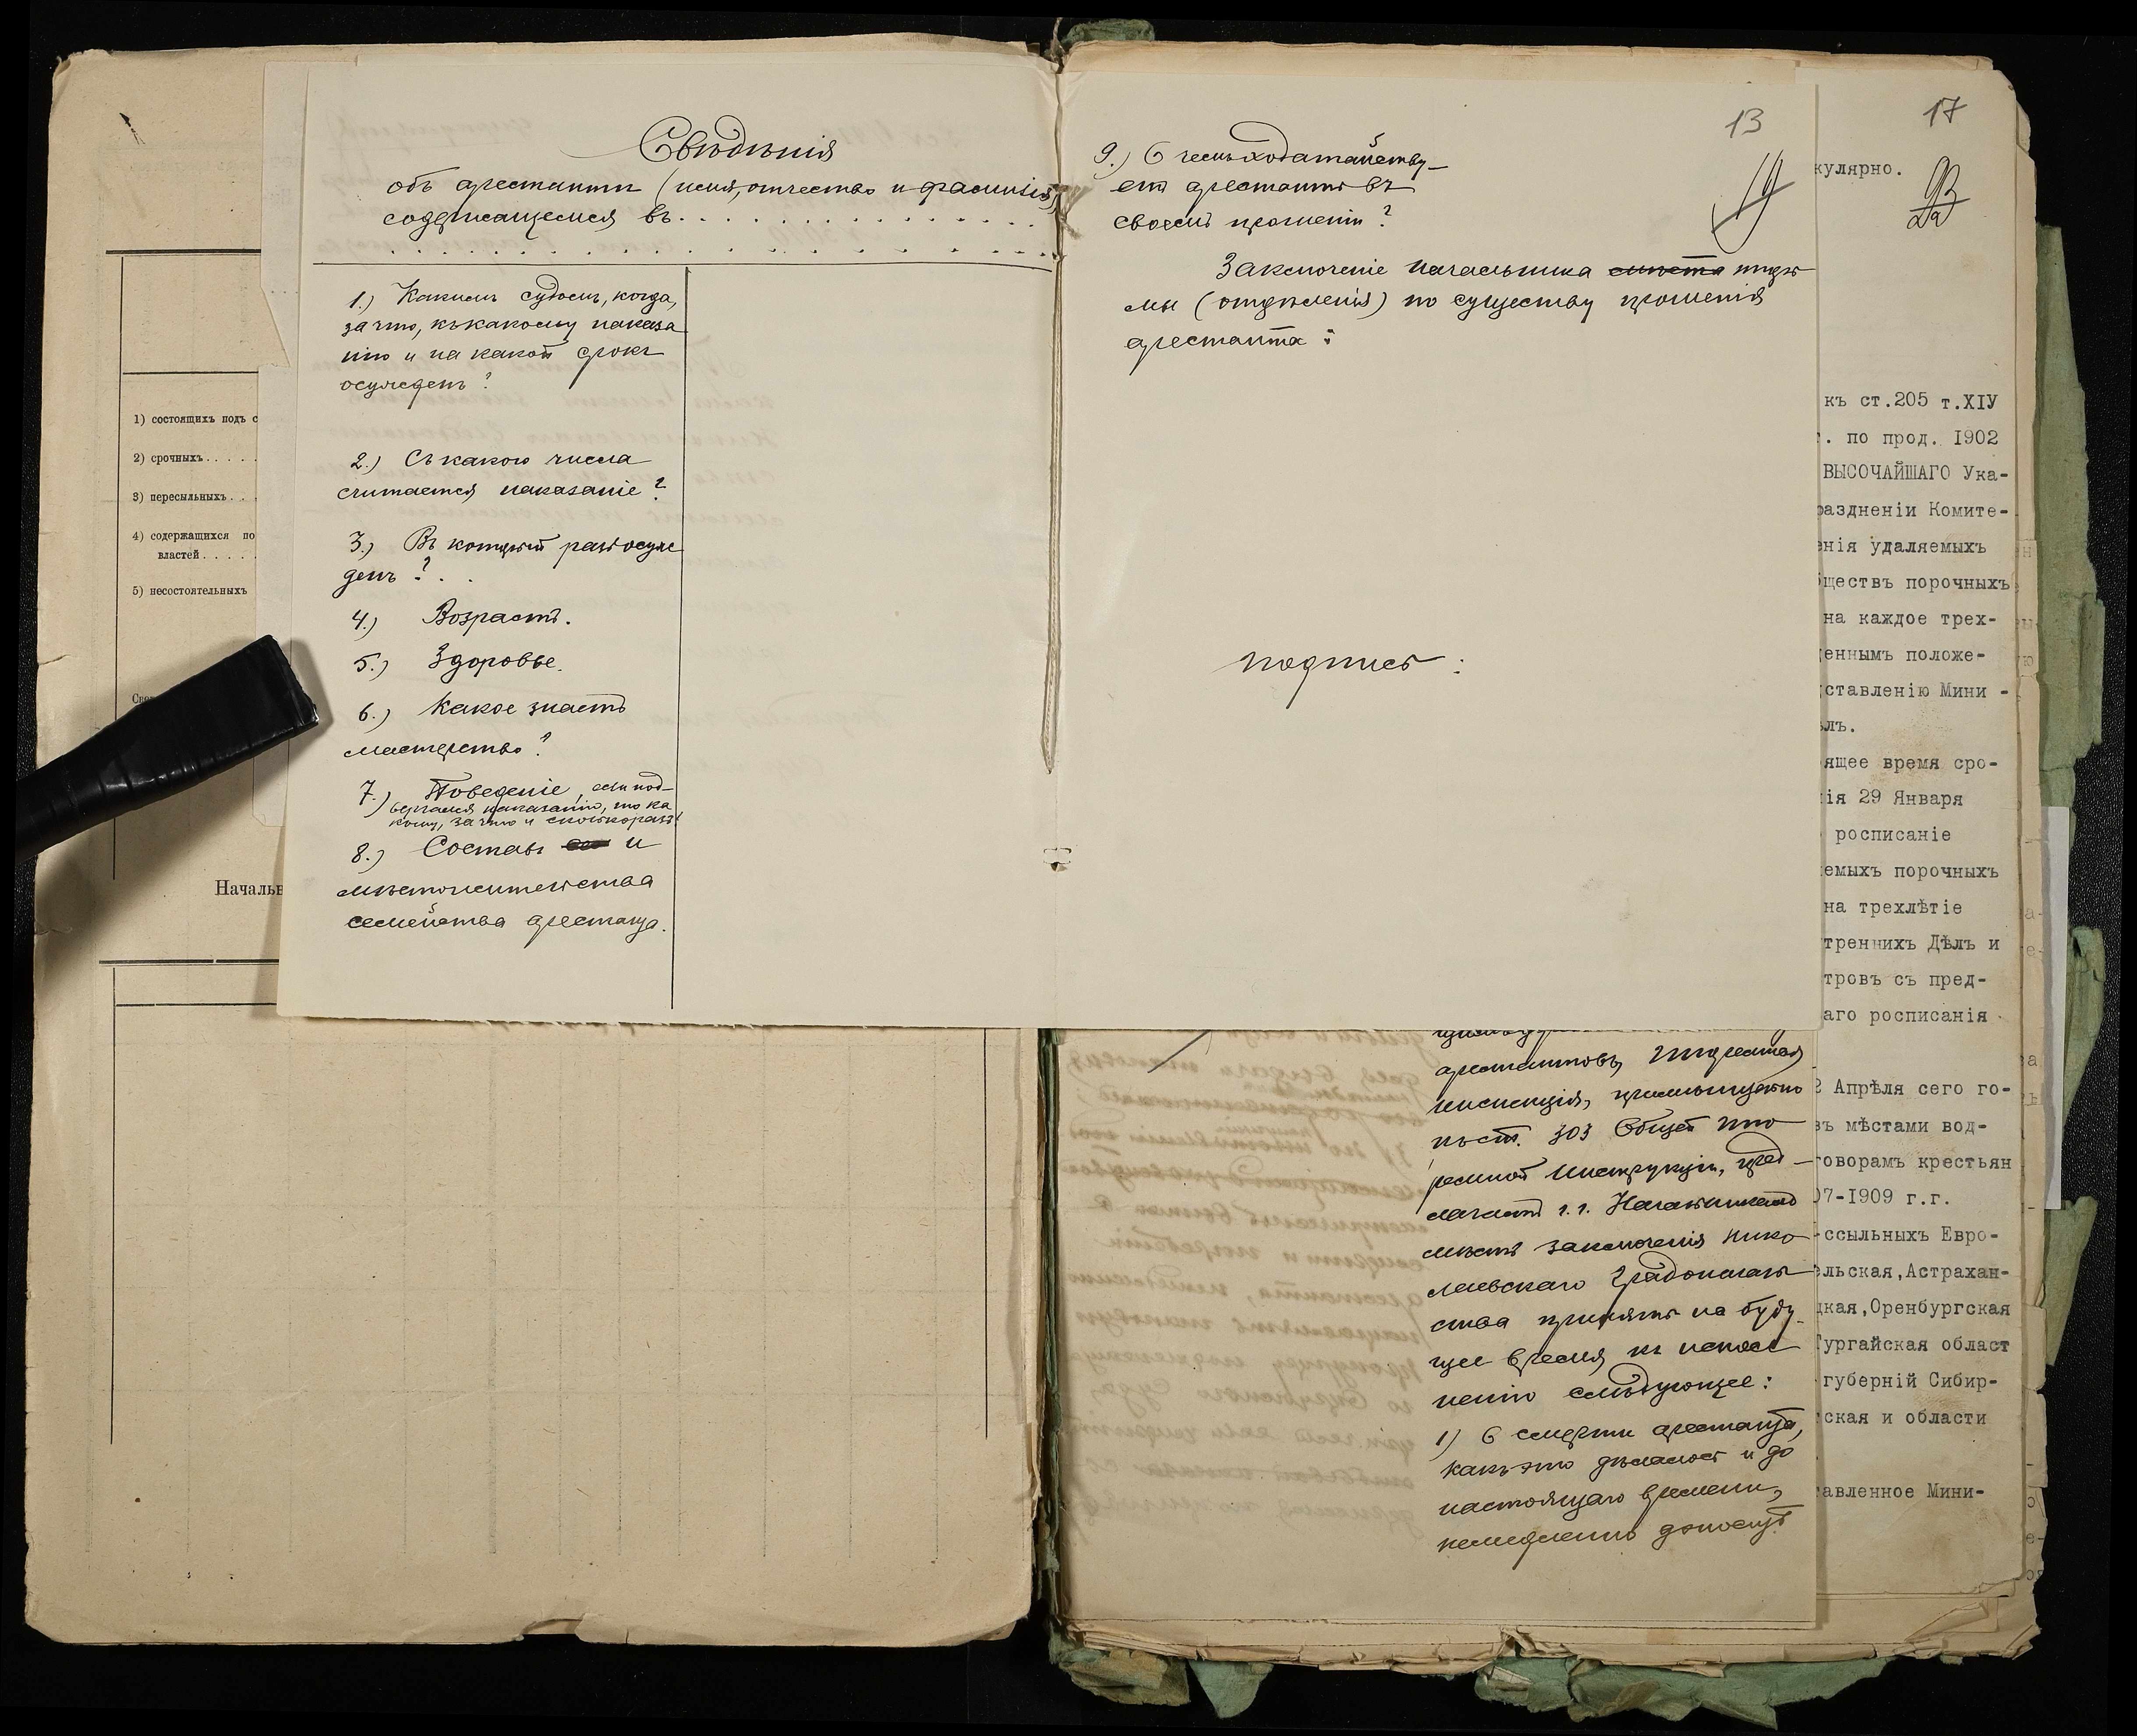 Свѣдѣнія
объ арестантѣ (имя, отчество и фамилія),
содержащемся въ. . . . . . . . . . . . . .
1.) Какимъ судомъ, когда,
за что, къ какому наказа
нію и на какой срокъ
осужденъ?
2.) Съ какого числа
считается наказаніе?
3.) Въ который разъ осуж
денъ? . .
4.) Возрастъ.
5.) Здоровье.
6.) Какое знаетъ
мастерство?
7.) Поведеніе, если под-
вергался наказанію, то ка
кому, за что и сколько разъ?
8.) Составъ и
мѣстожительства
семейства арестанта.
13
19
9.) О чемъ ходатайству-
етъ арестантъ въ
своемъ прошеніи?
Заключеніе начальника мѣста тюрь
мы (отдѣленія) по существу прошенія
арестанта:
подпись:
арестантовъ, Тюремная
инспекція, примѣнительно
къ ст. 303 Общей тю
ремной инструкціи, пред-
лагаетъ г.г. Начальникамъ
мѣстъ заключенія Нико
лаевскаго Градоначаль
ства принять на буду-
щее время къ испол
ненію слѣдующее:
1) О смерти арестанта,
какъ это дѣлалось и до
настоящаго времени,
немедленно доносить
1) состоящихъ подъ с
2) срочныхъ . . . . .
3) пересыльныхъ . . .
4) содержащихся по
властей . . . . .
5) несостоятельныхъ
Начальн
17
кулярно.
къ ст.205 т.XIУ
. по прод. 1902
ВЫСОЧАЙШАГО Ука-
раздненіи Комите-
енія удаляемыхъ
ществъ порочныхъ
на каждое трех-
деннымъ положе-
дставленію Мини -
лъ.
ящее время сро-
ія 29 Января
росписаніе
емыхъ порочныхъ
на трехлѣтіе
треннихъ Дѣлъ и
тровъ съ пред-
аго росписанія
2 Апрѣля сего го-
въ мѣстами вод-
говорамъ крестьян
07-1909 г.г.
ссыльныхъ Евро-
ельская,Астрахан-
цкая,Оренбургская
Тургайская област
губерній Сибир-
ская и области
авленное Мини-